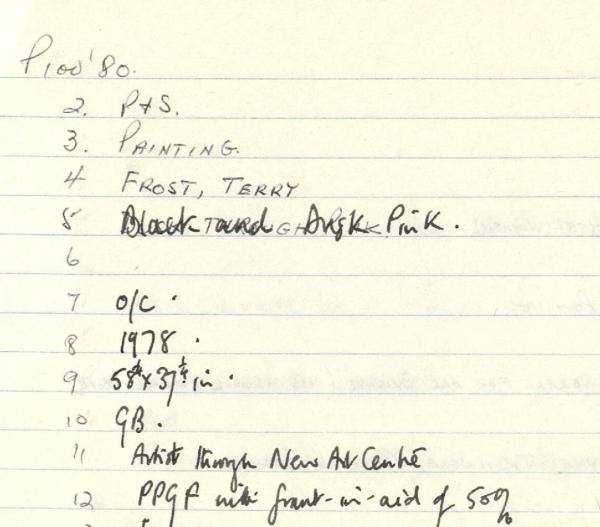 P100'80.
2. P+S.
3. PAINTING.
4 FROST, TERRY
5 Pink.
6
7 O/C.
8 1978.
9 58¼ x 37¼ in.
10 GB.
11 Artist through New Art Centre
12 PPGF with grant-in-aid of 50%